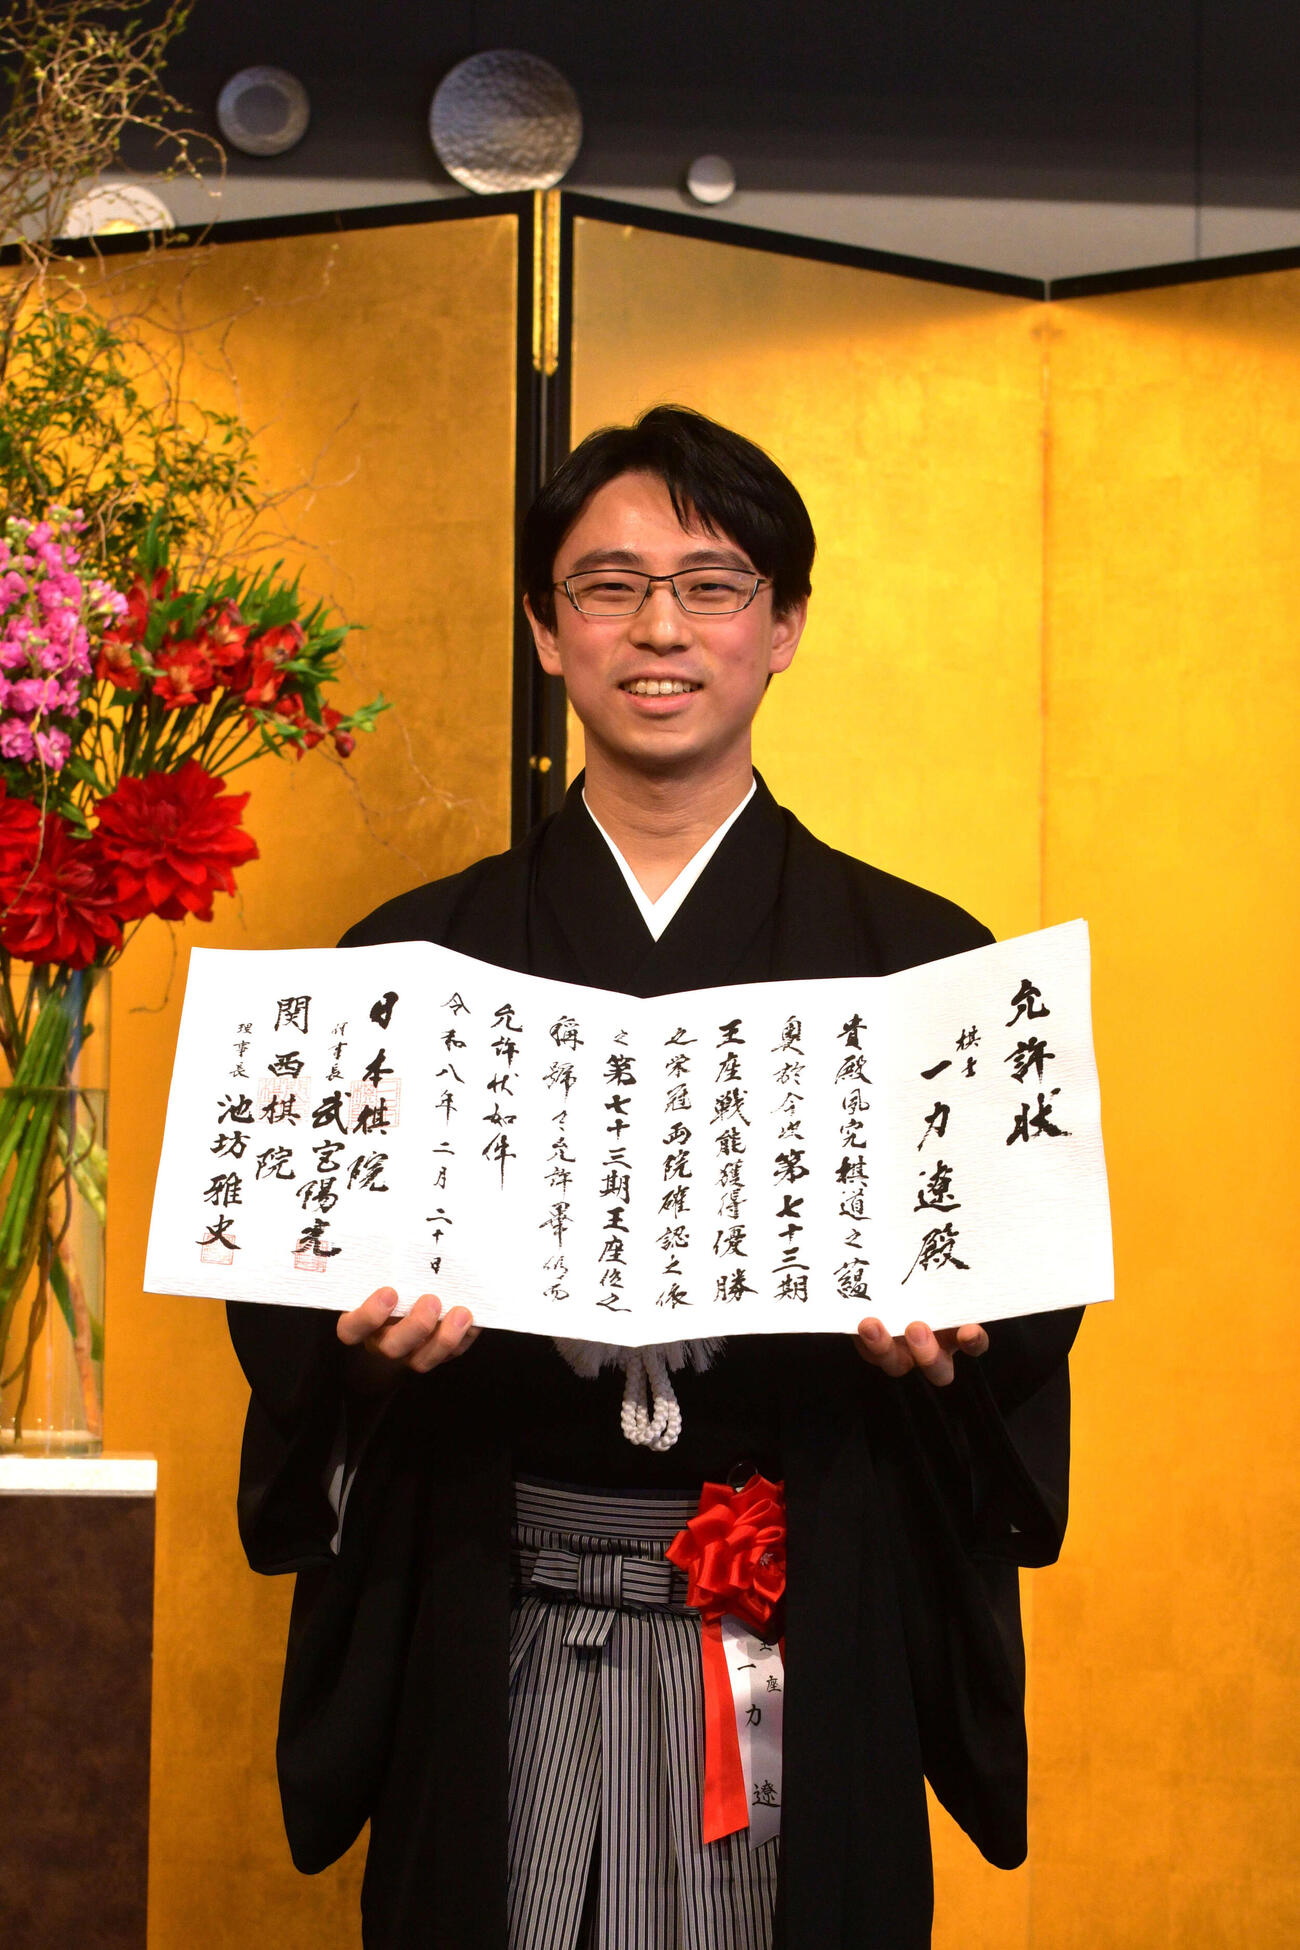 允許状
棋士
一力遼殿
貴殿夙究棋道之蘊
奥於今次第七十三期
王座戦能獲得優勝
之栄冠両院確認之依
之第七十三期王座位之
稱號令允許畢仍而
允許状如件
令和八年二月二十日
日本棋院
理事長 武宮陽光
関西棋院
理事長 池坊雅史
王座
一力遼